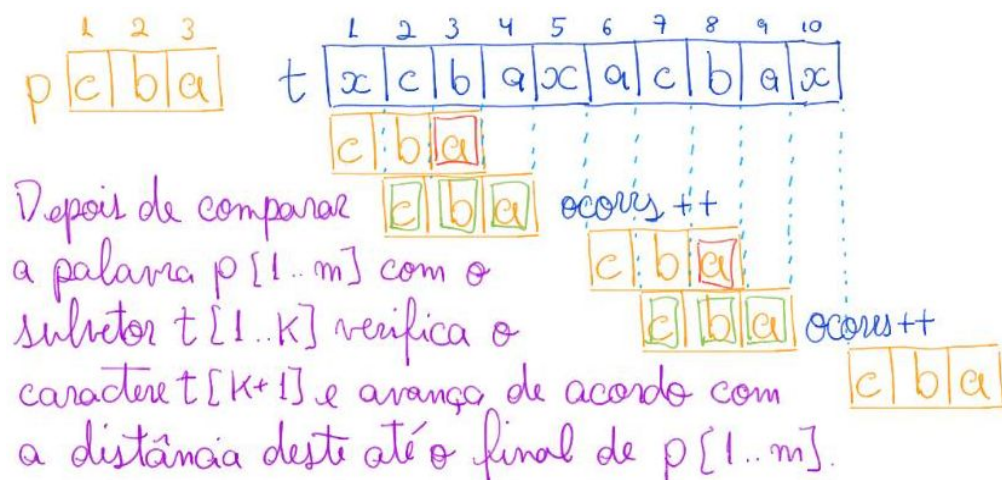 1 2 3
p c b a
1 2 3 4 5 6 7 8 9 10
t x c b a x a c b a x
c b a
c b a ocorrs ++
c b a
c b a ocorrs ++
c b a
Depois de comparar
a palavra p[1..m] com o
subvetor t[1..k] verifica o
caractere t[k+1] e avança de acordo com
a distância deste até o final de p[1..m].